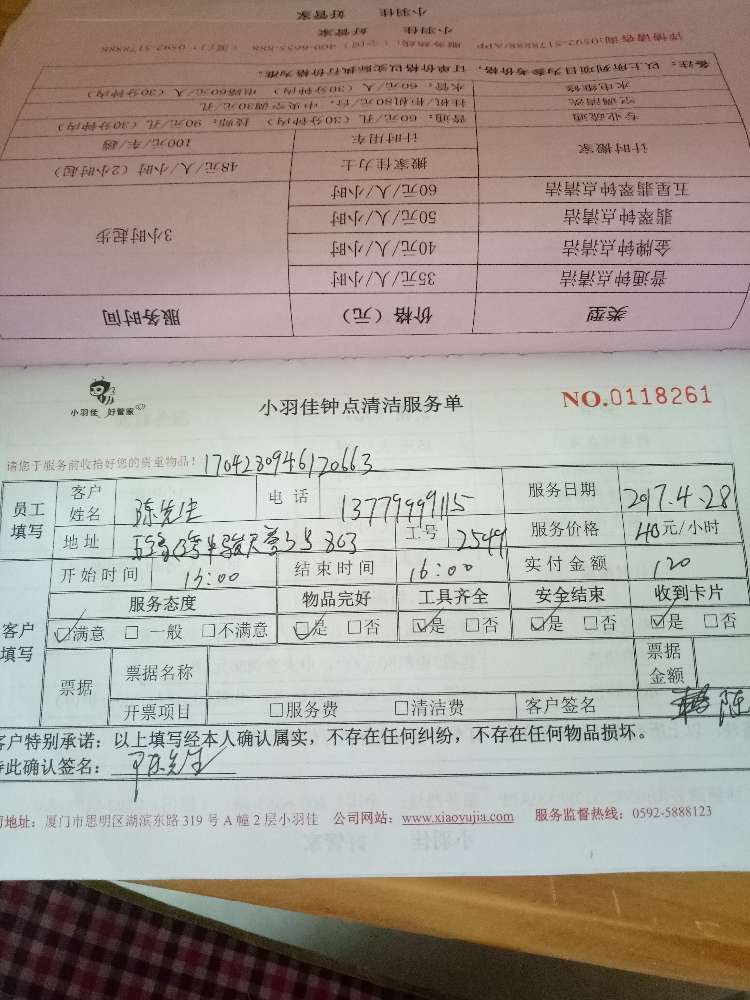 小羽佳 好管家
小羽佳 好管家
详情请咨询:0592-5178888/APP 服务热线:(全国)400-6655-888 (厦门)0592-5178888
备注:以上所列项目为参考价格,订单价格以实际执行价格为准。
水电维修 水管:60元/人(30分钟内) 电路60元/人(30分钟内)
空调清洗 挂机/柜机180元/台,中央空调30元/孔
专业疏通 普通:60元/孔(30分钟内) 技师:90元/孔(30分钟内)
计时搬家 计时用车 100元/车/趟
搬家佳力士 48元/人/小时(2小时起)
五星翡翠钟点清洁 60元/人/小时
翡翠钟点清洁 50元/人/小时 3小时起步
金牌钟点清洁 40元/人/小时
普通钟点清洁 35元/人/小时
类型 价格(元) 服务时间
小羽佳 好管家
小羽佳钟点清洁服务单
NO.0118261
请您于服务前收拾好您的贵重物品! 1704280946120663
员工填写 客户姓名 陈先生 电话 13779999115 服务日期 2017.4.28
地址 303 工号 2549 服务价格 40元/小时
客户填写 开始时间 13:00 结束时间 16:00 实付金额 120
服务态度 物品完好 工具齐全 安全结束 收到卡片
☑满意 □一般 □不满意 ☑是 □否 ☑是 □否 ☑是 □否 ☑是 □否
票据 票据名称 票据金额
开票项目 □服务费 □清洁费 客户签名 陈
客户特别承诺:以上填写经本人确认属实,不存在任何纠纷,不存在任何物品损坏。
特此确认签名: 陈先生
司地址:厦门市思明区湖滨东路319号A幢2层小羽佳 公司网站:www.xiaoyujia.com 服务监督热线:0592-5888123